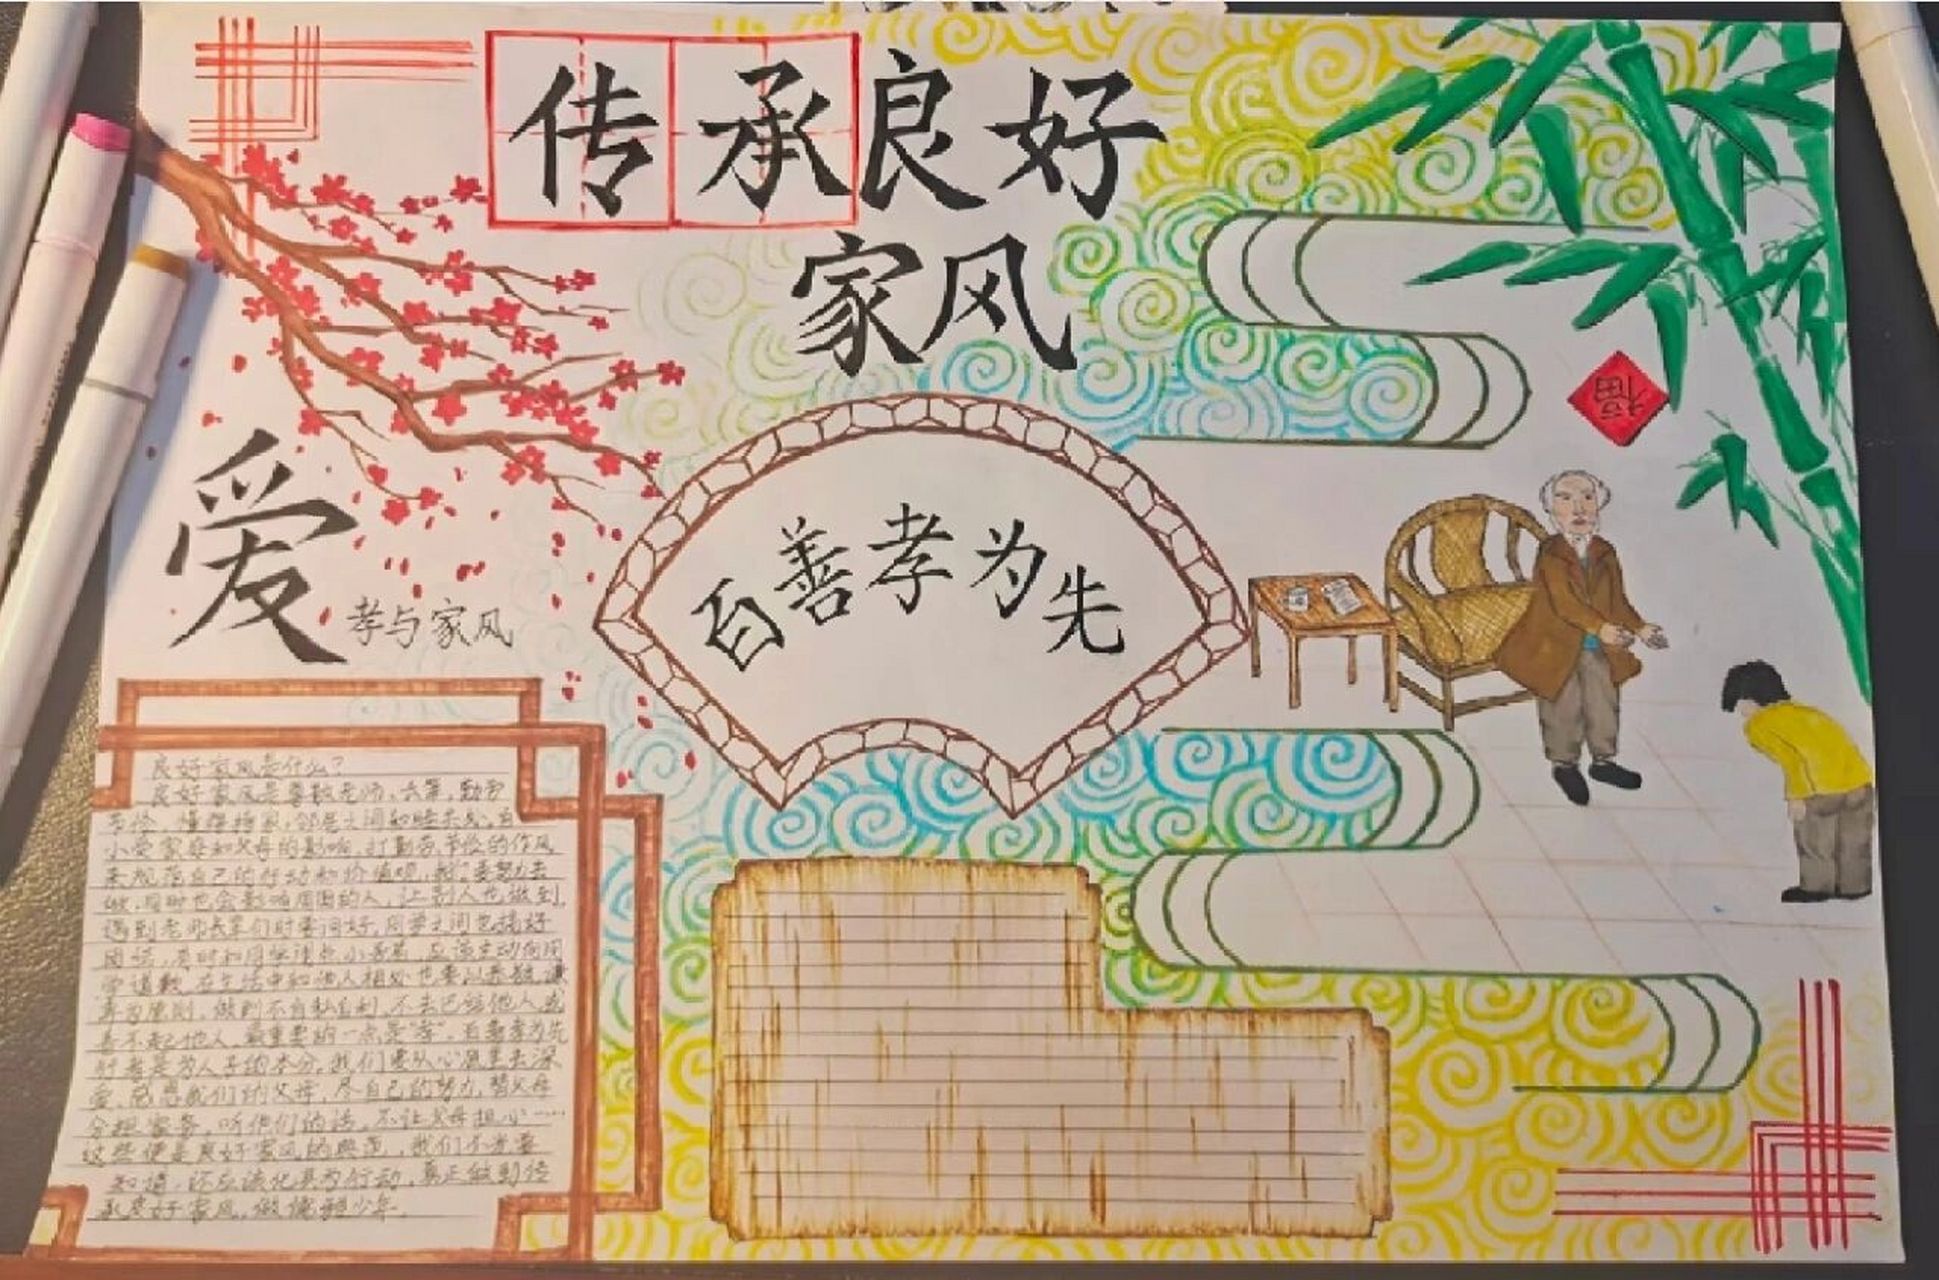 传承良好
家风
福
爱
孝与家风
百善孝为先
良好家风是什么?
良好家风是尊敬老师、长辈,勤劳
节俭、懂得持家,邻居之间和睡
小受家庭和父母的影响,以勤劳、节俭的作风
来规范自己的行动和价值观,我们要努力去
做,同时也会影响周围的人,让别人也做到,
遇到老师长辈们时要问好,同学之间也搞好
团结,有时和同学
学道歉,在生活中和他人相处也要以
为原则,做到不自私自利,不去
看不起他人,最重要的一点是“孝”,百善孝为先
行孝是为人子的本分,我们要从心底里去深
爱、感恩我们的父母,尽自己的努力,替父母
分担家务,听他们的话,不让父母担心……
这些便是良好家风的典范,我们不光要
知道,还应该化其为行动,真正做到传
承良好家风,做儒雅少年。